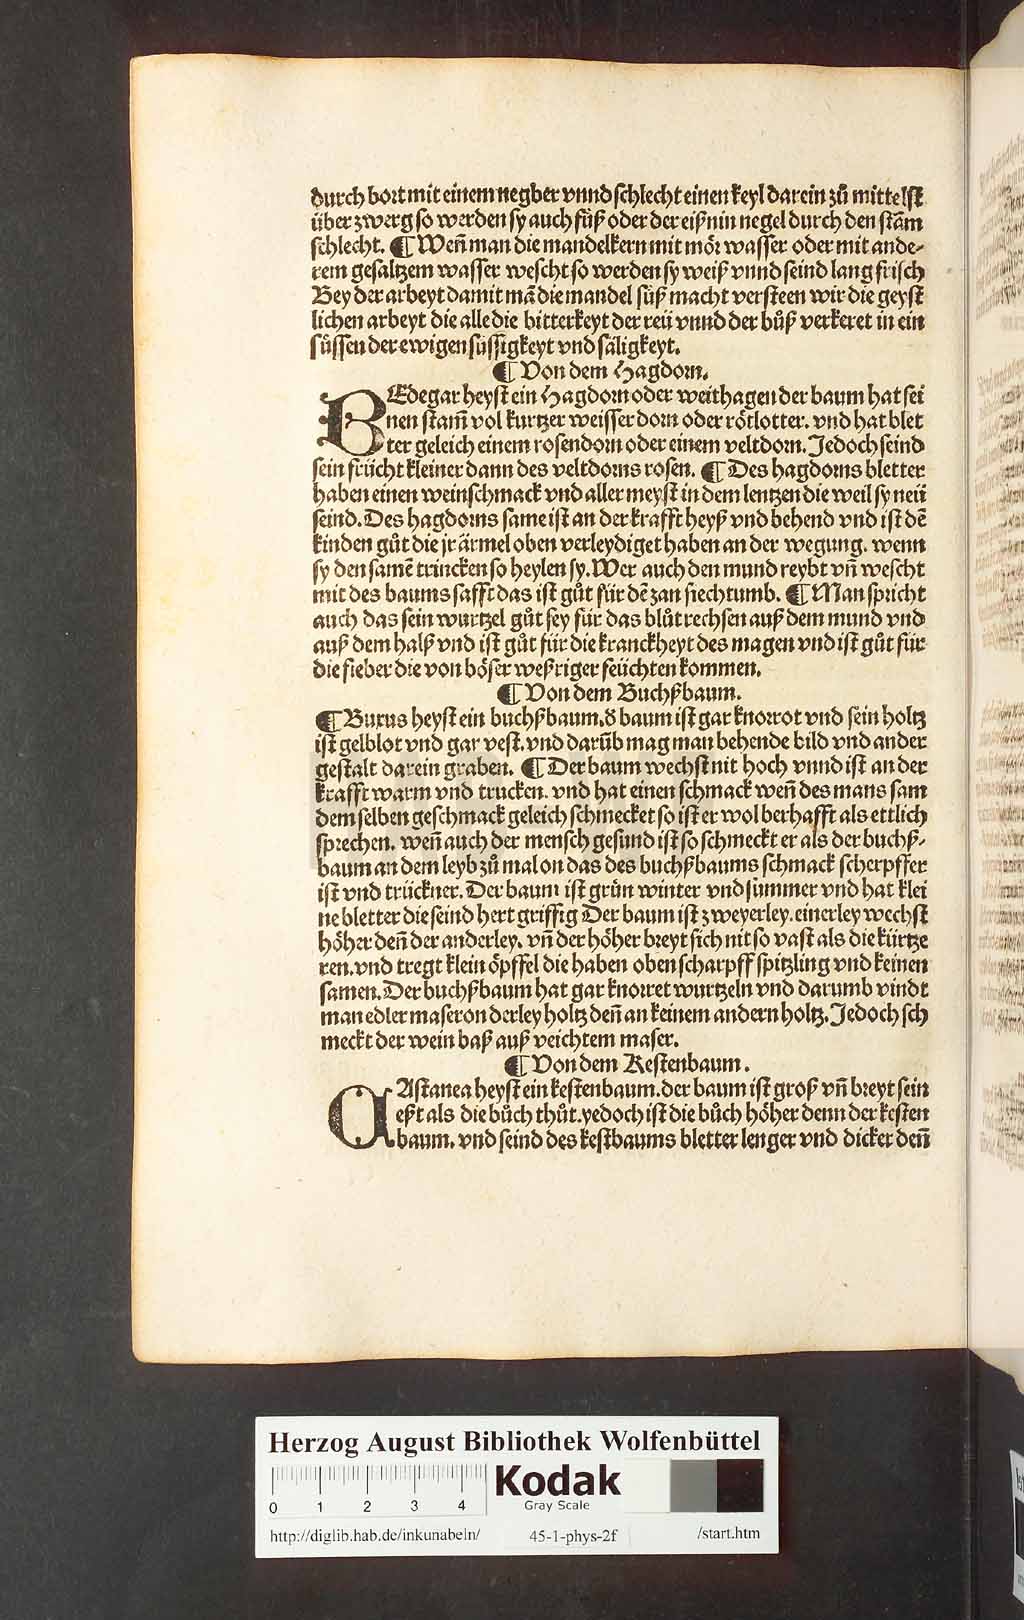 durch bort mit einem negber vnnd schlecht einen keyl darein zů mittelst
über zwerg so werden sy auch süß oder der eißnin negel durch den stãm
schlecht. ¶ Weñ man die mandelkern mit mör wasser oder mit ande-
rem gesaltzem wasser wescht so werden sy weiß vnnd seind lang frisch
Bey der arbeyt damit mã die mandel süß macht versteen wir die geyst
lichen arbeyt die alle die bitterkeyt der reü vnnd der bůß verkeret in ein
süssen der ewigen süssigkeyt vnd säligkeyt.
¶ Von dem Hagdorn.
BEdegar heyst ein Hagdorn oder weithagen der baum hat sei
nen stam̃ vol kurtzer weisser dorn oder rötlotter. vnd hat blet
ter geleich einem rosendorn oder einem veltdorn. Jedoch seind
sein frücht kleiner dann des veltdorns rosen. ¶ Des hagdorns bletter
haben einen weinschmack vnd aller meyst in dem lentzen die weil sy neü
seind. Des hagdorns same ist an der krafft heyß vnd behend vnd ist dẽ
kinden gůt die jr ärmel oben verleydiget haben an der wegung. wenn
sy den samẽ trincken so heylen sy. Wer auch den mund reybt vñ wescht
mit des baums safft das ist gůt für dẽ zan siechtumb. ¶ Man spricht
auch das sein wurtzel gůt sey für das blůt rechsen auß dem mund vnd
auß dem halß vnd ist gůt für die kranckheyt des magen vnd ist gůt für
die fieber die von böser weßriger feüchten kommen.
¶ Von dem Buchßbaum.
¶ Buxus heyst ein buchßbaum. ð baum ist gar knorrot vnd sein holtz
ist gelblot vnd gar vest. vnd darũb mag man behende bild vnd ander
gestalt darein graben. ¶ Der baum wechst nit hoch vnnd ist an der
krafft warm vnd trucken. vnd hat einen schmack weñ des mans sam
dem selben geschmack geleich schmecket so ist er wol berhafft als ettlich
sprechen. weñ auch der mensch gesund ist so schmeckt er als der buchß-
baum an dem leyb zů mal on das des buchßbaums schmack scherpffer
ist vnd trückner. Der baum ist grün winter vnd summer vnd hat klei
ne bletter die seind hert griffig Der baum ist zweyerley. einerley wechst
höher deñ der anderley. vñ der höher breyt sich nit so vast als die kürtze
ren. vnd tregt klein öpffel die haben oben scharpff spitzling vnd keinen
samen. Der buchßbaum hat gar knorret wurtzeln vnd darumb vindt
man edler maser on derley holtz deñ an keinem andern holtz. Jedoch sch
meckt der wein baß auß veichtem maser.
¶ Von dem Kestenbaum.
CAstanea heyst ein kestenbaum. der baum ist groß vñ breyt sein
eßt als die bůch thůt. yedoch ist die bůch höher denn der kesten
baum. vnd seind des kestbaums bletter lenger vnd dicker deñ
Herzog August Bibliothek Wolfenbüttel
0 1 2 3 4
Kodak
Gray Scale
http://diglib.hab.de/inkunabeln/ 45-1-phys-2f /start.htm